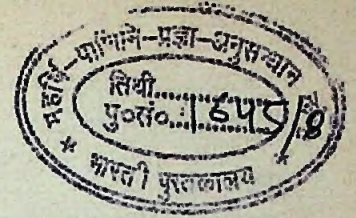 महर्षि-पाणिनि-प्रज्ञा-अनुसन्धान
तिथी..........
पु०सं०..
* भारती पुस्तकालय *